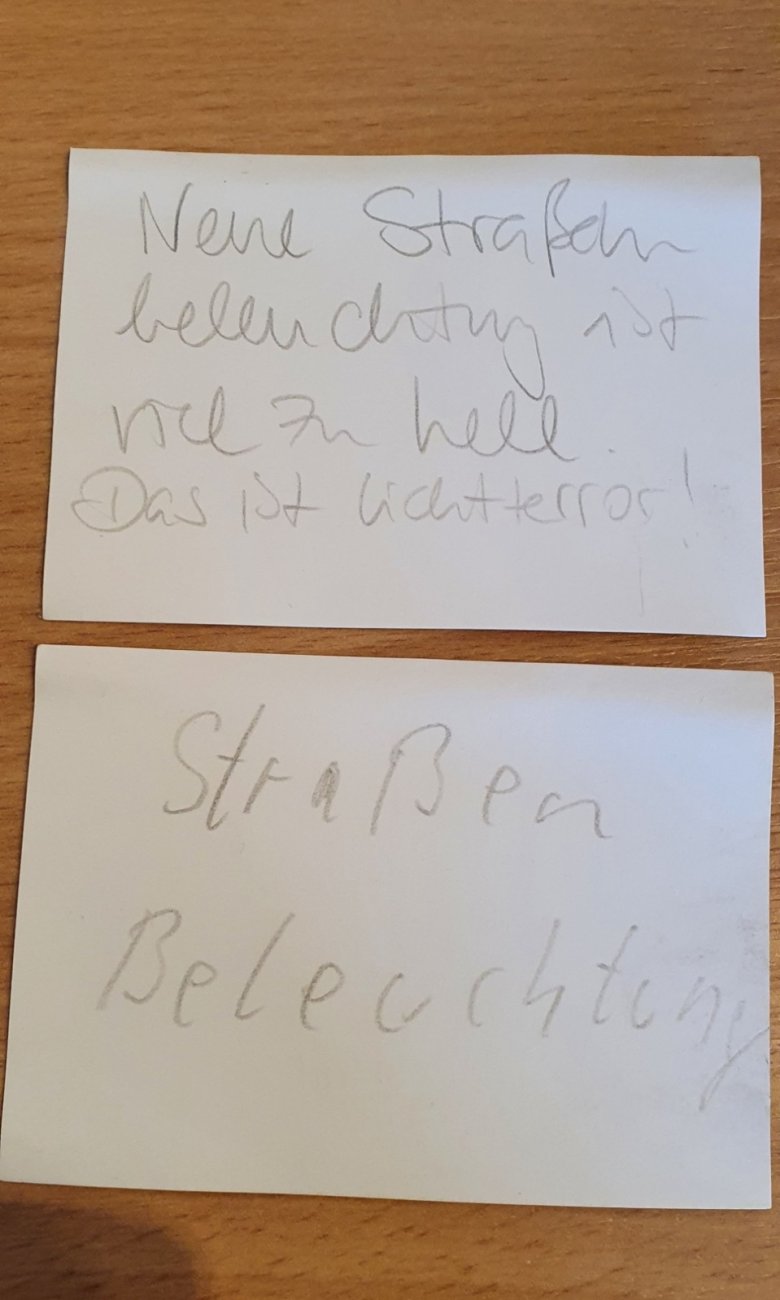 Neue Straßen
beleuchtung ist
viel zu hell.
Das ist Lichtterror!
Straßen
Beleuchtung